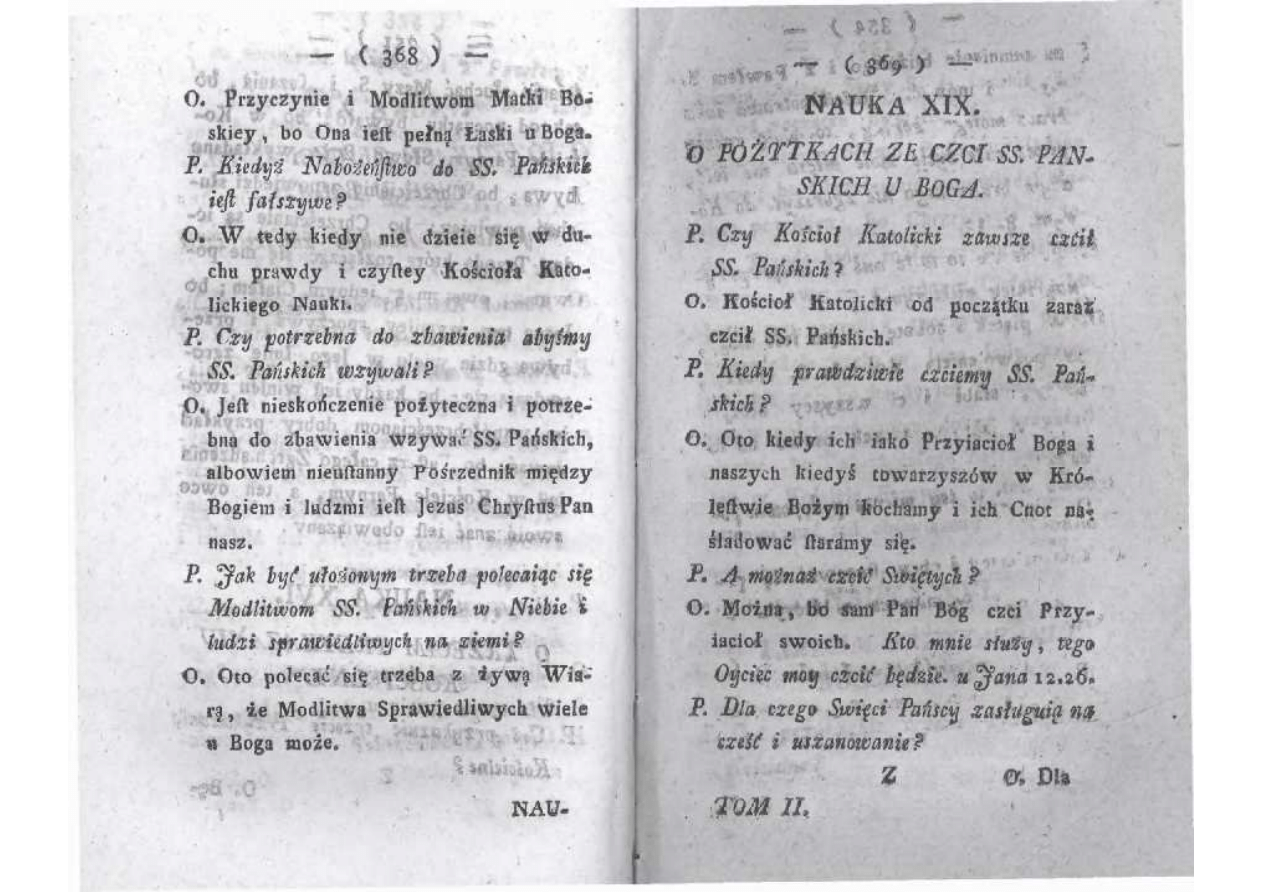 — ( 368 ) —
O. Przyczynie i Modlitwom Matki Bo-
skiey, bo Ona ieſt pełną Łaski u Boga.
P. Kiedyż Nabożeńſtwo do SS. Pańskich
ieſt fałszywe?
O. W tedy kiedy nie dzieie się w du-
chu prawdy i czyſtey Kościoła Kato-
lickiego Nauki.
P. Czy potrzebna do zbawienia abyśmy
SS. Pańskich wzywali?
O. Jeſt nieskończenie pożyteczna i potrze-
bna do zbawienia wzywać SS. Pańskich,
albowiem nieuſtanny Pośrzednik między
Bogiem i ludzmi ieſt Jezus Chryſtus Pan
nasz.
P. Jak być ułożonym trzeba polecaiąc się
Modlitwom SS. Pańskich w Niebie i
ludzi sprawiedliwych na ziemi?
O. Oto polecać się trzeba z żywą Wia-
rą, że Modlitwa Sprawiedliwych wiele
u Boga może.
NAU-
— ( 369 ) —
NAUKA XIX.
O POŻYTKACH ZE CZCI SS. PAN-
SKICH U BOGA.
P. Czy Kościoł Katolicki zawsze czcił
SS. Pańskich?
O. Kościoł Katolicki od początku zaraz
czcił SS. Pańskich.
P. Kiedy prawdziwie czciemy SS. Pań-
skich?
O. Oto kiedy ich iako Przyiacioł Boga i
naszych kiedyś towarzyszów w Kró-
leſtwie Bożym kochamy i ich Cnot na-
śladować ſtaramy się.
P. A możnaż czcić Swiętych?
O. Można, bo sam Pan Bóg czci Przy-
iacioł swoich. Kto mnie służy, tego
Oyciec moy czcić będzie. u Jana 12.26.
P. Dla czego Swięci Pańscy zasługuią na
cześć i uszanowanie?
Z O. Dla
TOM II.